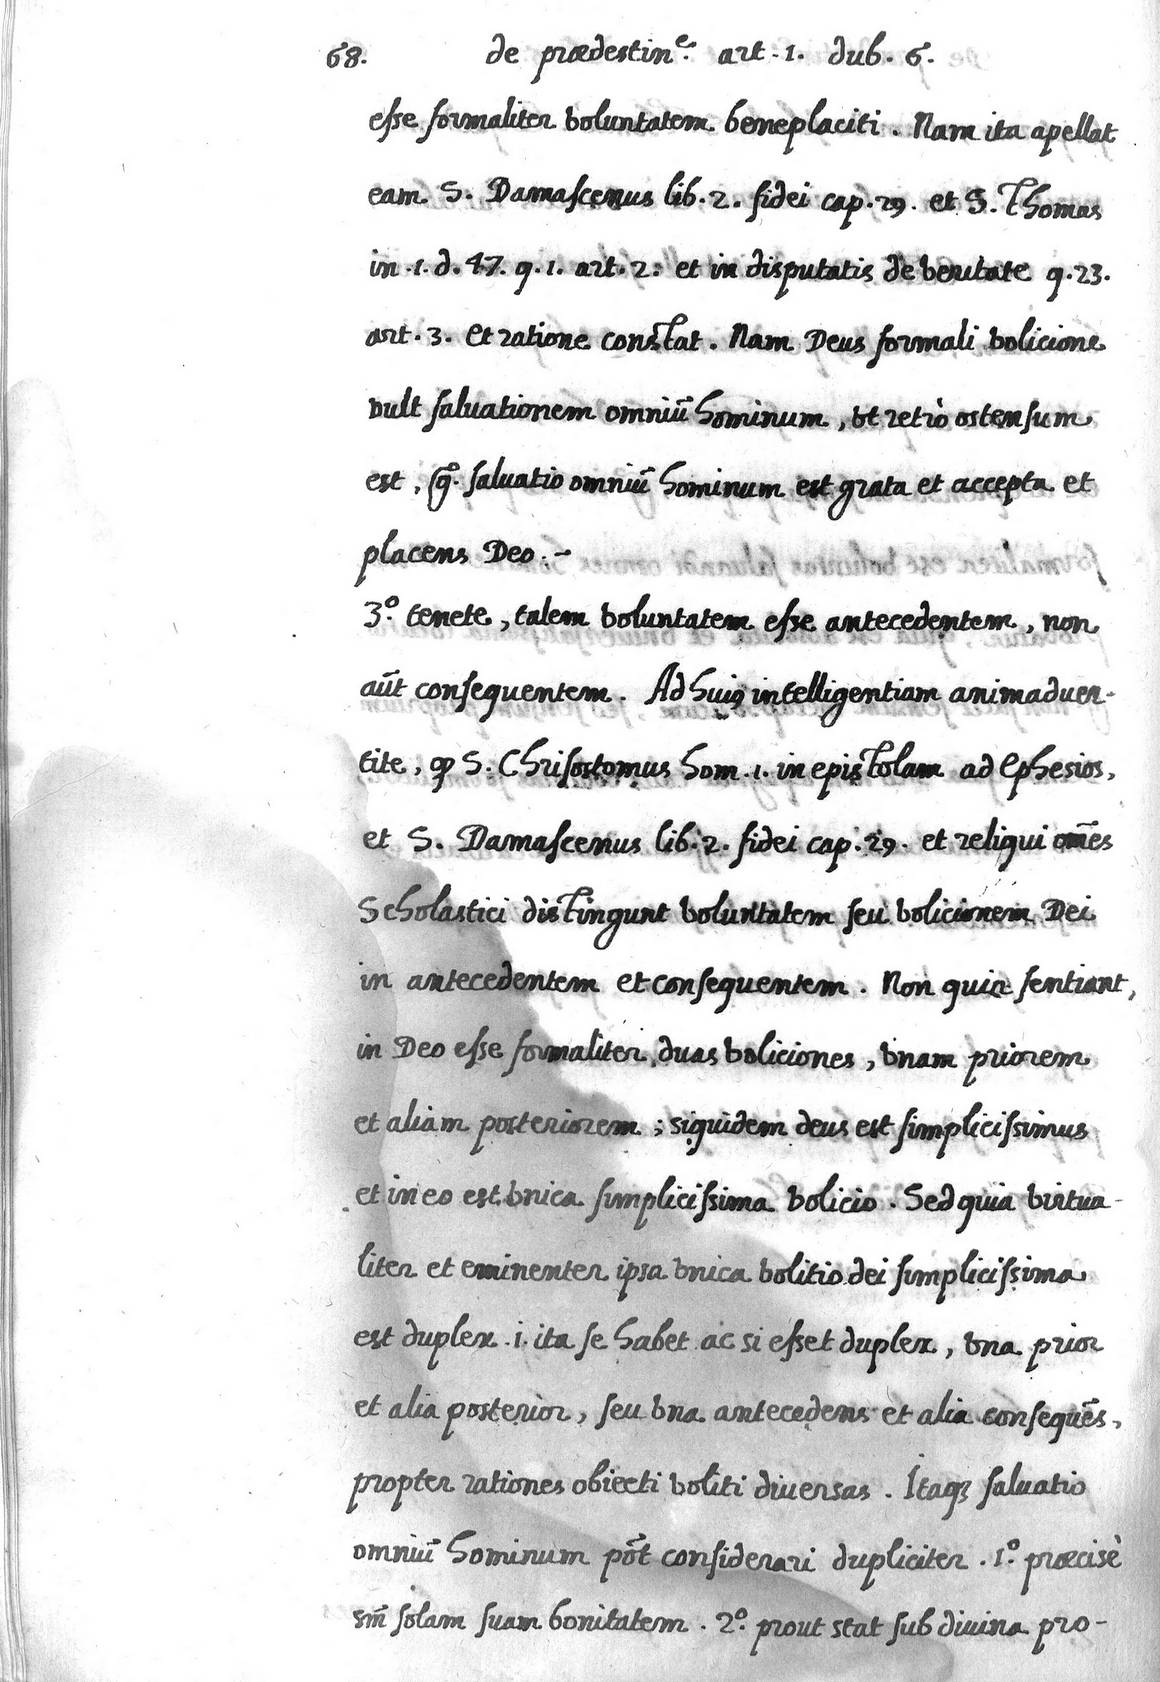 68. de prædestin.e art. 1. dub. 6.
esse formaliter voluntatem beneplaciti. Nam ita apellat
eam S. Damascenus lib. 2. fidei cap. 29. et S. Thomas
in .1. d. 47. q. 1. art. 2: et in disputatis de veritate q. 23.
art. 3. Et ratione constat. Nam Deus formali volicione
vult saluationem omniũ hominum, vt retrò ostensum
est, g.º saluatio omniũ hominum est grata et accepta et
placens Deo. –
3.º tenete, talem voluntatem esse antecedentem, non
aũt consequentem. Ad huiꝯ intelligentiam animaduer-
tite, ꝙ S. Chrisostomus hom. 1. in epistolam ad Ephesios,
et S. Damascenus lib. 2. fidei cap. 29. et reliqui om̃es
Scholastici distingunt voluntatem seu volicionem Dei
in antecedentem et consequentem. Non quia sentiant,
in Deo esse formaliter duas voliciones, vnam priorem
et aliam posteriorem; siquidem deus est simplicissimus
et in eo est vnica simplicissima volicio. Sed quia virtua-
liter et eminenter ipsa vnica volitio dei simplicissima
est duplex .i. ita se habet ac si esset duplex, vna prior
et alia posterior, seu vna antecedens et alia consequẽs,
propter rationes obiecti voliti diuersas. Itaqꝫ saluatio
omniũ hominum põt considerari dupliciter. 1.º præcisè
sm̃ solam suam bonitatem. 2.º prout stat sub diuina pro-